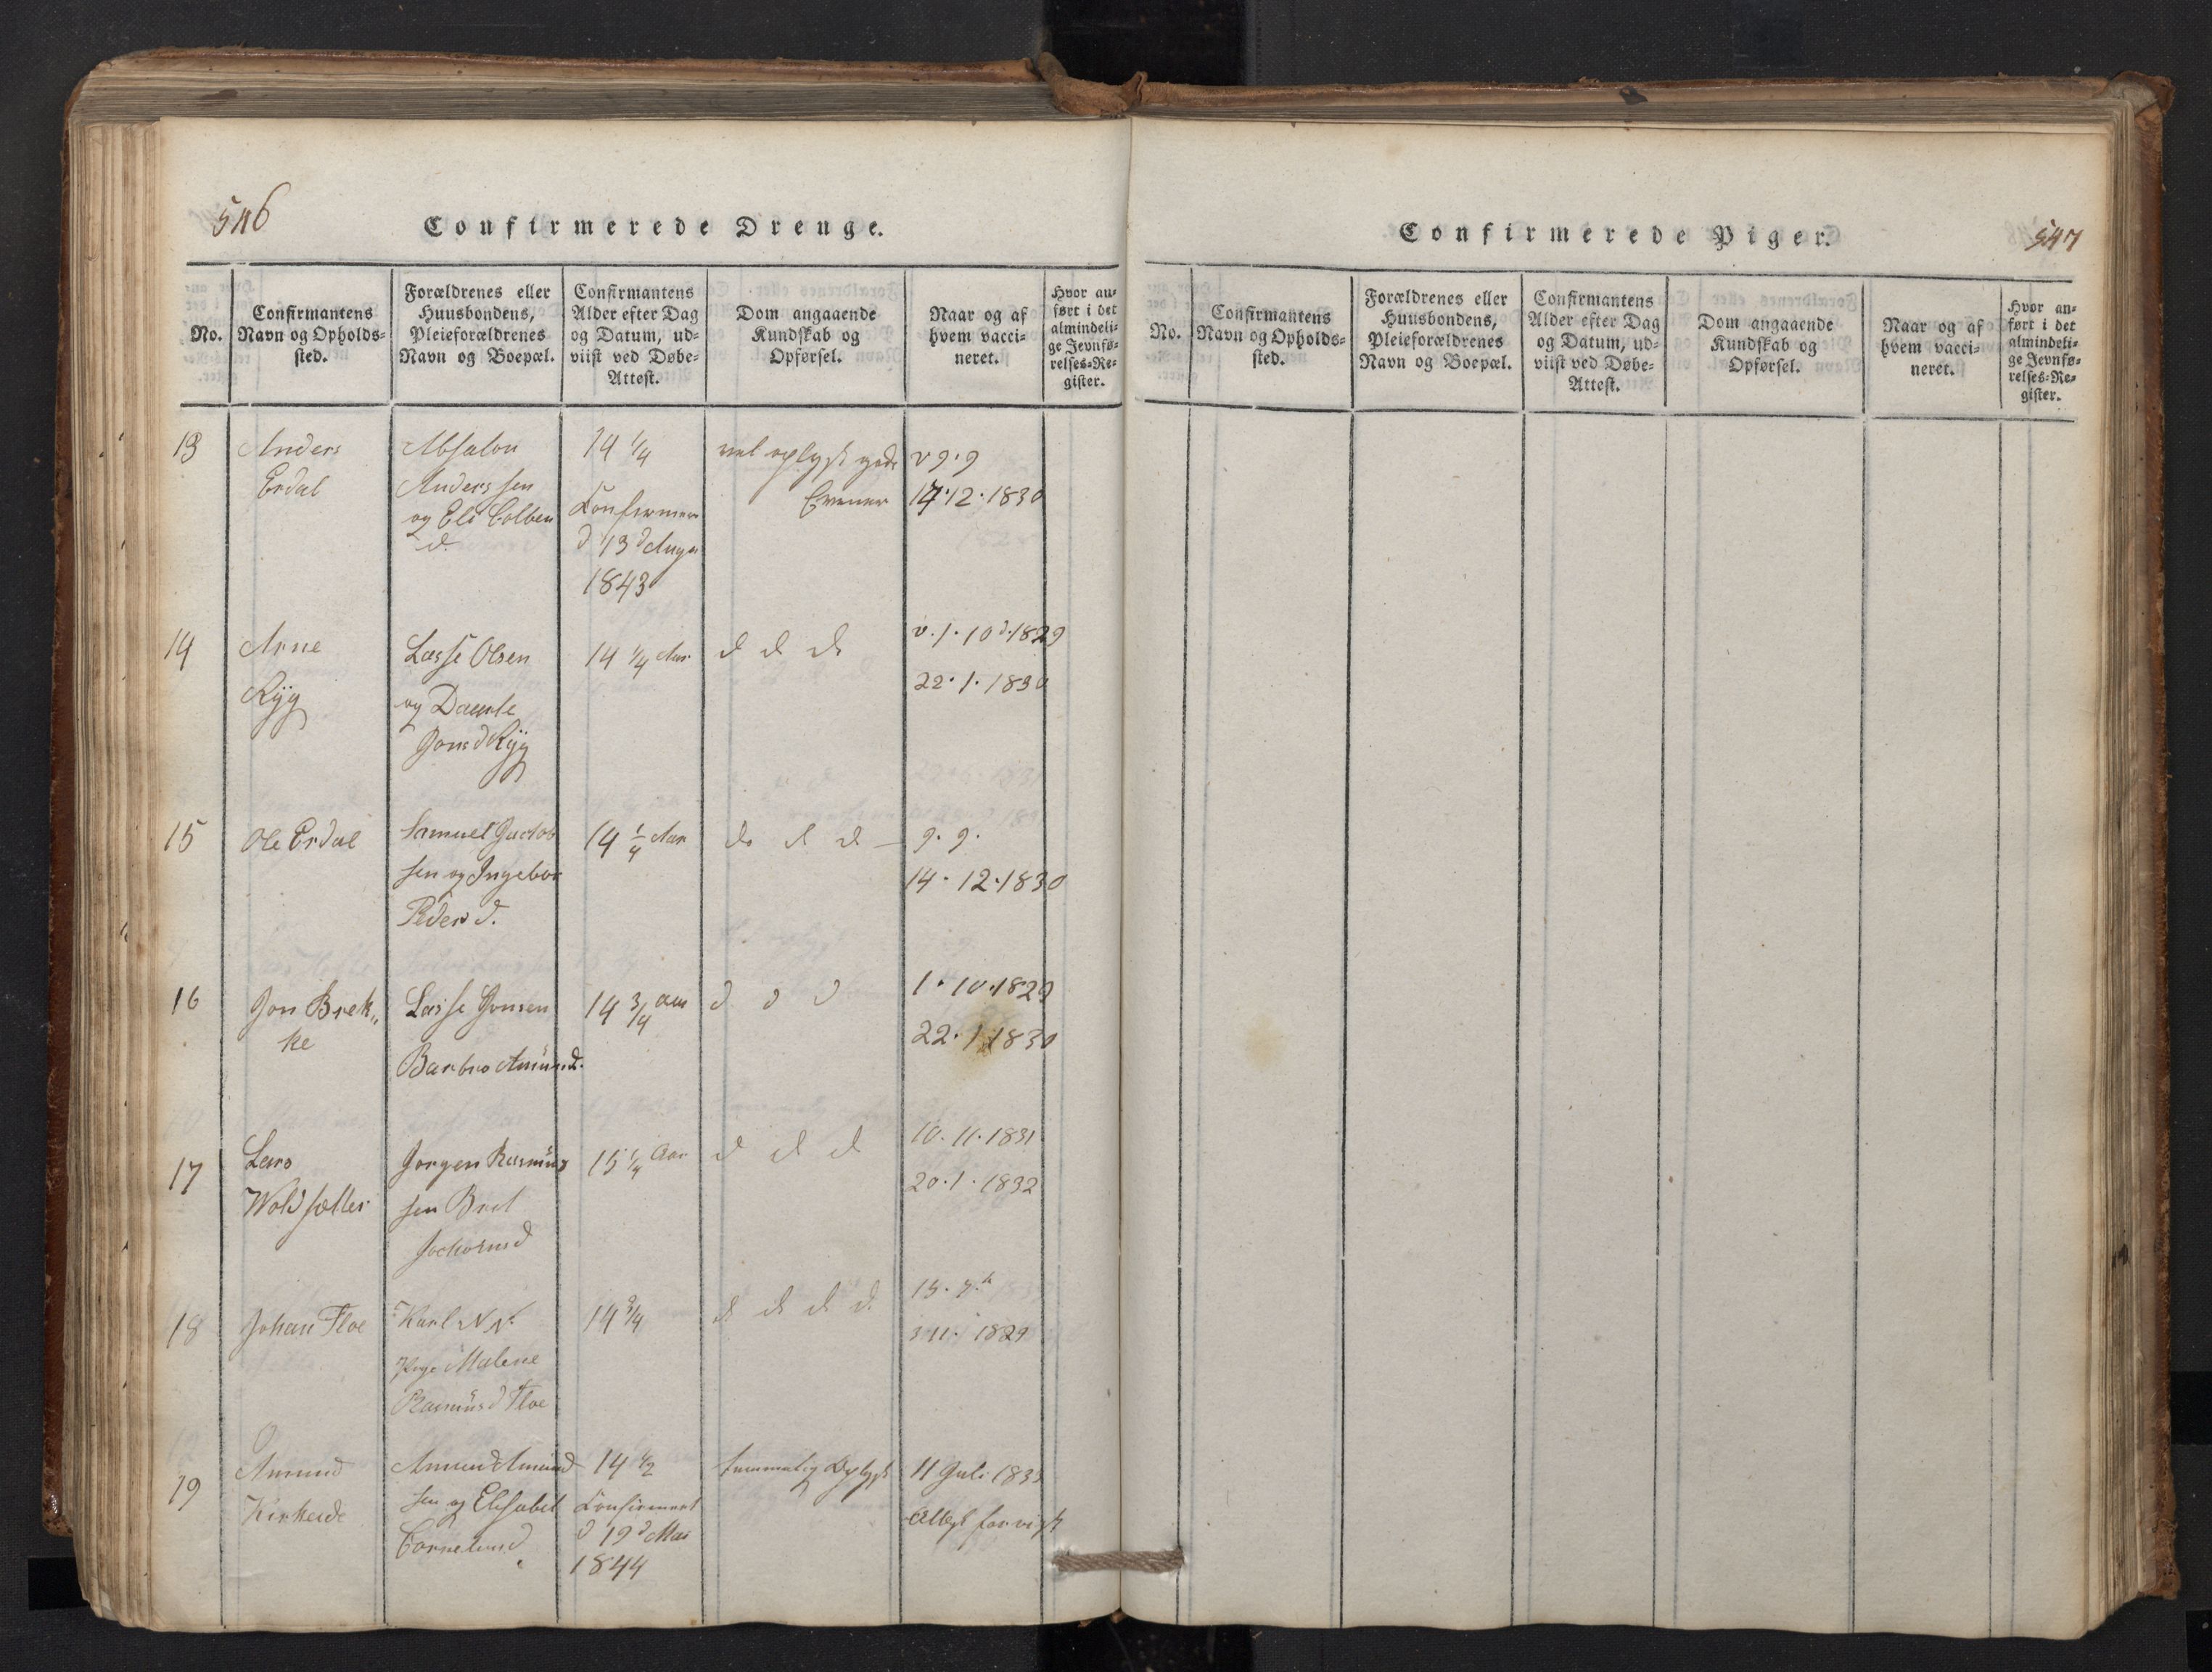 546
Confirmerede Drenge.
No.
Confirmantens
Navn og Opholds-
sted.
Forældrenes eller
Huusbondens,
Pleieforældrenes
Navn og Boepæl.
Confirmantens
Alder efter Dag
og Datum, ud-
viist ved Døbe-
Attest.
Dom angaaende
Kundskab og
Opførsel.
Naar og af
hvem vacci-
neret.
Hvor an-
ført i det
almindeli-
ge Jevnfø-
relses-Re-
gister.
13
Anders
Erdal
Absalon
Anders sen
og Eli Colben
d.
14 1/4
Confirmer
d 13 d Aug
1843
vel oplyst gode
Evener
v g. g
14. 12. 1830
14
Arne
Ryg
Lasse Olsen
og Daarte
Jons d Ryg
14 1/4 Aar
d d d
v. 1. 10 d. 1829
22. 1. 1830
15
Ole Erdal
Samuel Jacob
sen og Ingebor
Peders d.
14 1/4 Aar
d d d
g. g.
14. 12. 1830
16
Jon Brek
ke
Lasse Jonsen
Barbro Amund d.
14 3/4 Aar
d d d
1. 10. 1829
22. 1. 1830
17
Lars
Woldsætter
Jorgen Rasmus
sen Bret
Jochums d
15 1/4 Aar
d d d
10. 11. 1831
20. 1. 1832
18
Johan Floe
Karl N. N.
Pige Malene
Rasmus d Floe
14 3/4
d d d d.
3 11. 1829
19
Amund
Kirkeide
Amund Amund
sen og Elisabet
Cornelius d
14 1/2
Confirmert
d 19 d Mai
1844
temmelig Oplyst
11 Juli 1833
Attest forvist
Confirmerede Piger.
547
No.
Confirmantens
Navn og Opholds-
sted.
Forældrenes eller
Huusbondens,
Pleieforældrenes
Navn og Boepæl.
Confirmantens
Alder efter Dag
og Datum, ud-
viist ved Døbe-
Attest.
Dom angaaende
Kundskab og
Opførsel.
Naar og af
hvem vacci-
neret.
Hvor an-
ført i det
almindeli-
ge Jevnfø-
relses-Re-
gister.